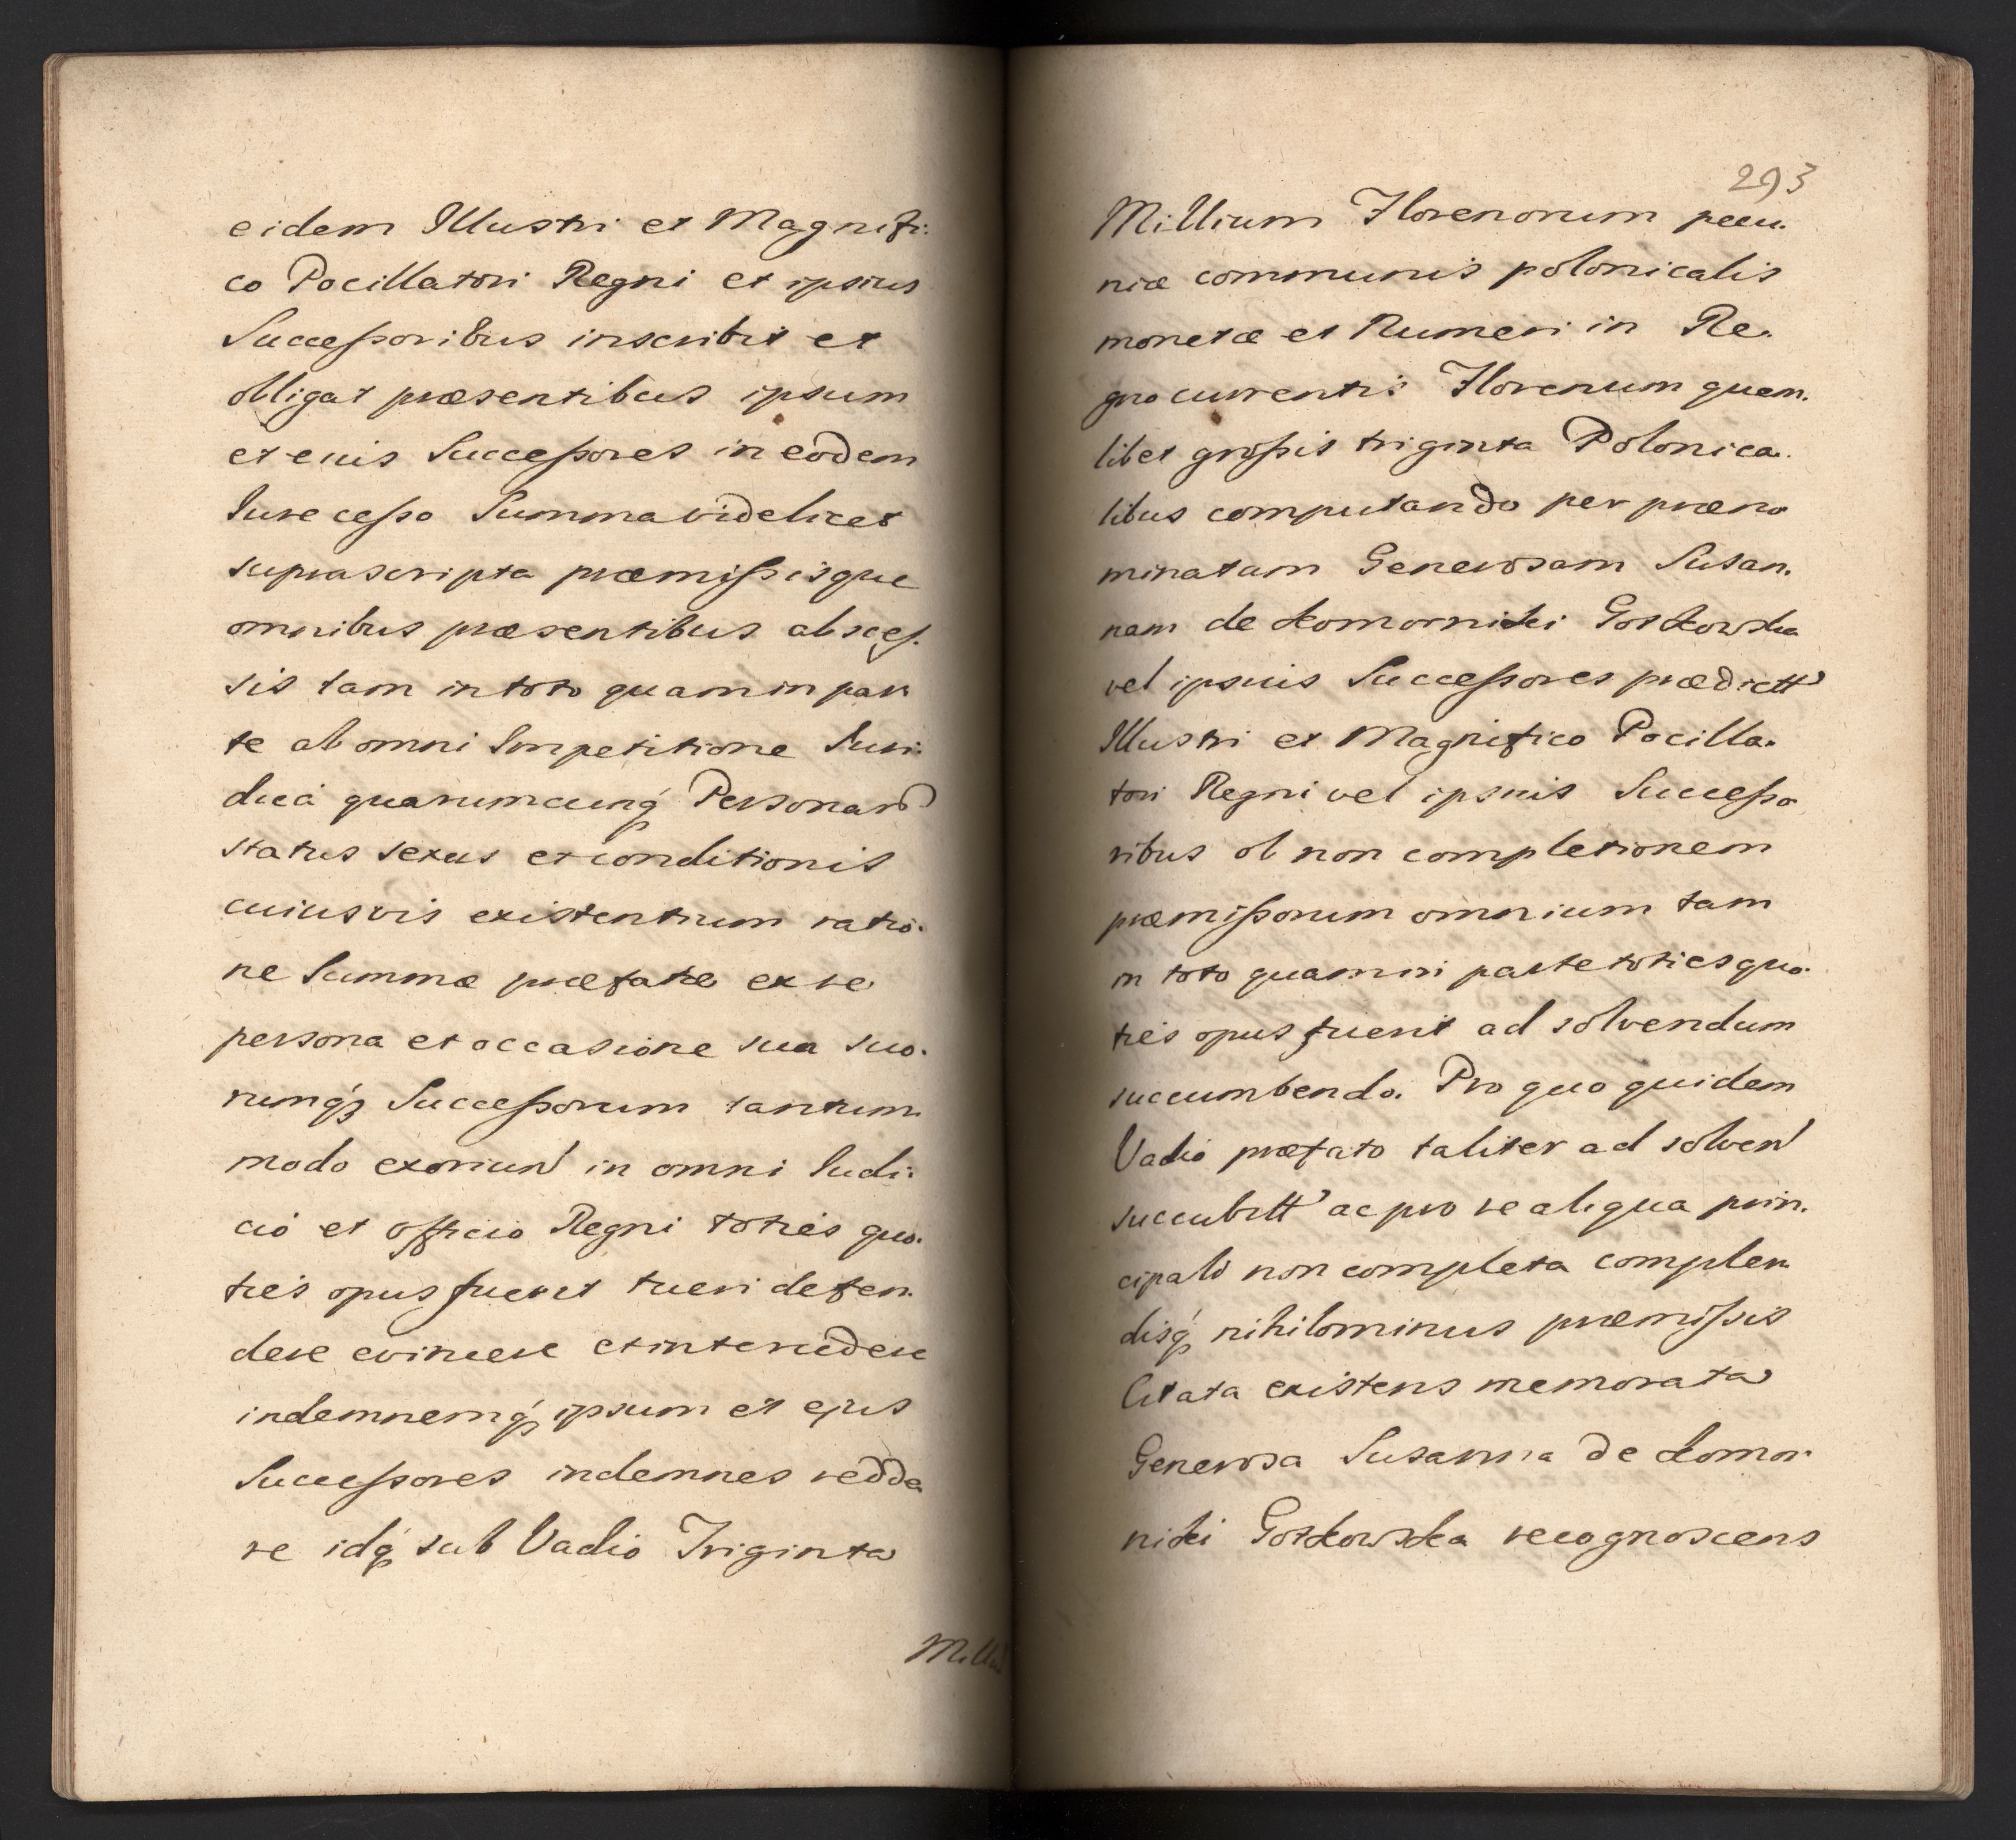 eidem Illustri et Magnifi:
co Pocillatori Regni et ipsius
Successoribus inscribit et
obligat præsentibus ipsum
et eius Successores in eodem
Iure cesso Summa videlicet
suprascripta præmissisque
omnibus præsentibus absces.
sis tam in toto quam in par
te ab omni Impetitione Iuri:
dica quarumcunq₃ Personar
status sexus et conditionis
cuiusvis existentium ratio.
ne Summæ præfatæ ex re
persona et occasione sua suo.
rumq₃ Successorum tantum.
modo exoriun in omni Iudi:
cio et officio Regni toties quo.
ties opus fueret tueri defen.
dere evincere et intercedere
indemnemq₃ ipsum et ejus
Successores indemnes redde
re idq₃ sub Vadio Triginta
Milliu
293
Millium Florenorum pecu.
niæ communis polonicalis
monetæ et Numeri in Re.
gno currentis Florenum quem.
libet grossis triginta Polonica.
libus computando per præno
minatam Generosam Susan.
nam de Komornicki Gorkowska
vel ipsius Successores prædictt
Illustri et Magnifico Pocilla.
tori Regni vel ipsius Successo
ribus ob non completionem
præmissorum omnium tam
in toto quam in parte toties quo.
ties opus fuerit ad solvendum
succumbendo. Pro quo quidem
Vadio præfato taliter ad solven
succubitt ac pro re aliqua prin.
cipali non completa complen
disq₃ nihilominus præmissis
Citata existens memorata
Generosa Susanna de Komor
nicki Gorkowska recognoscens